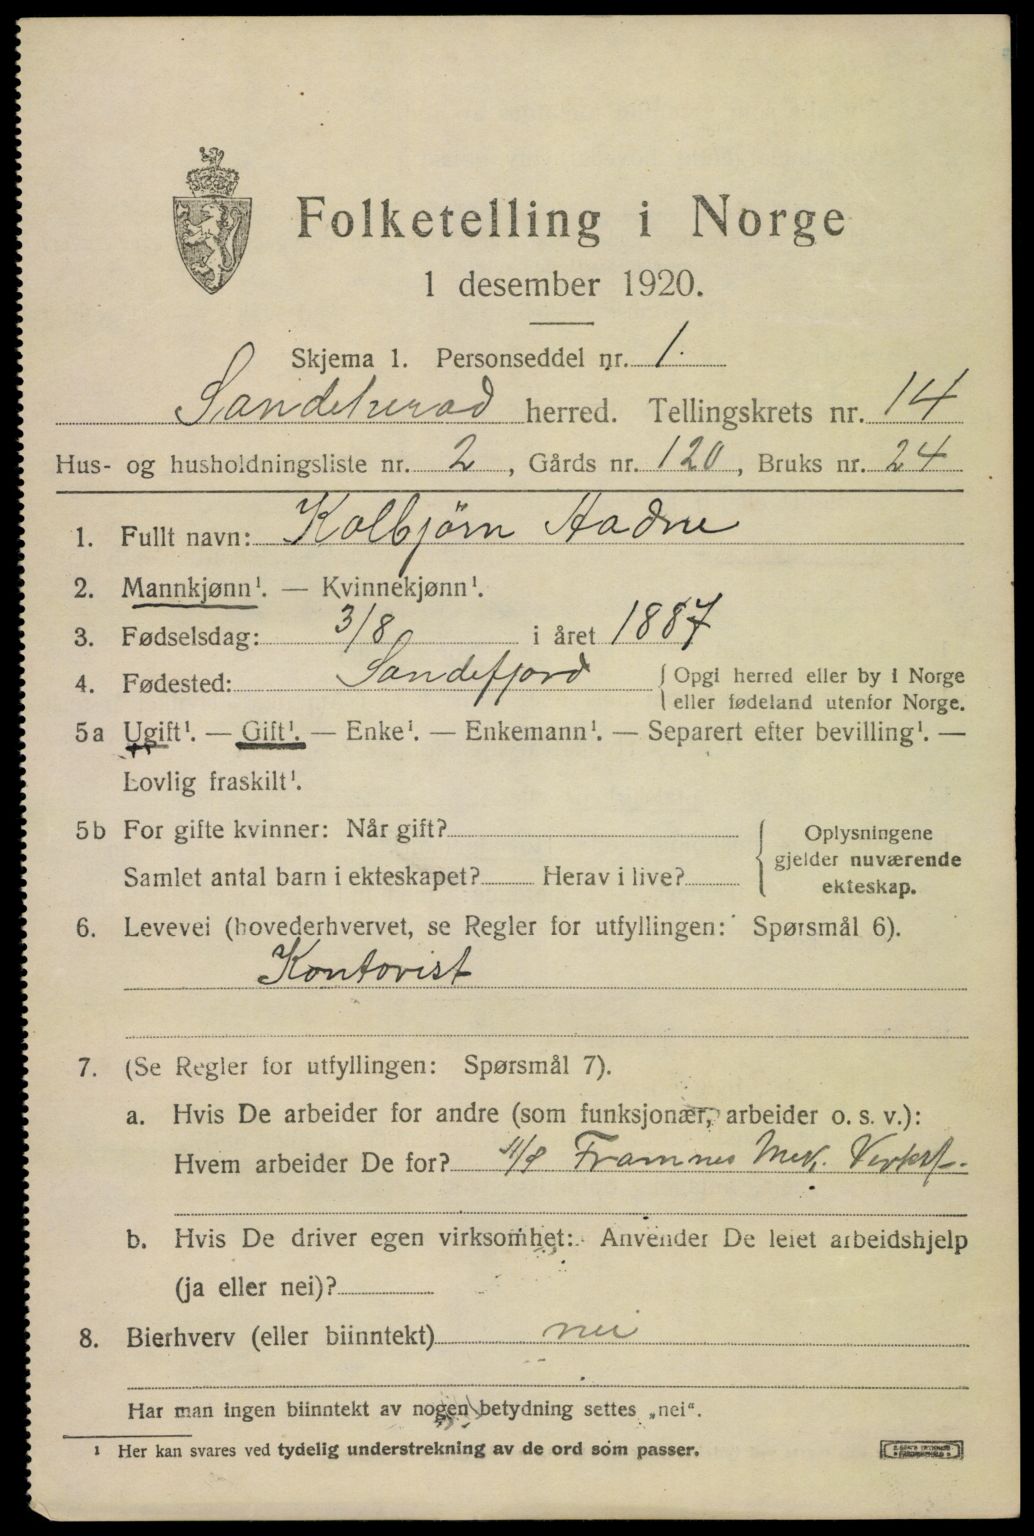 Folketelling i Norge
1 desember 1920.
Skjema 1. Personseddel nr. 1.
Sandeherad herred. Tellingskrets nr. 14
Hus- og husholdningsliste nr. 2, Gårds nr. 120, Bruks nr. 24
1. Fullt navn: Kolbjörn Aadne
2. Mannkjønn¹. — Kvinnekjønn¹.
3. Fødselsdag: 3/8 i året 1887
4. Fødested: Sandefjord { Opgi herred eller by i Norge
eller fødeland utenfor Norge.
5a Ugift¹. — Gift¹. — Enke¹. — Enkemann¹. — Separert efter bevilling¹. —
Lovlig fraskilt¹.
5b For gifte kvinner: Når gift?
Samlet antal barn i ekteskapet? Herav i live?
Oplysningene
gjelder nuværende
ekteskap.
6. Levevei (hovederhvervet, se Regler for utfyllingen: Spørsmål 6).
Kontorist
7. (Se Regler for utfyllingen: Spørsmål 7).
a. Hvis De arbeider for andre (som funksjonær, arbeider o. s. v.):
Hvem arbeider De for? A/S Framnes Mek. Verkst.
b. Hvis De driver egen virksomhet: Anvender De leiet arbeidshjelp
(ja eller nei)?
8. Bierhverv (eller biinntekt) nei
Har man ingen biinntekt av nogen betydning settes „nei“.
¹ Her kan svares ved tydelig understrekning av de ord som passer.